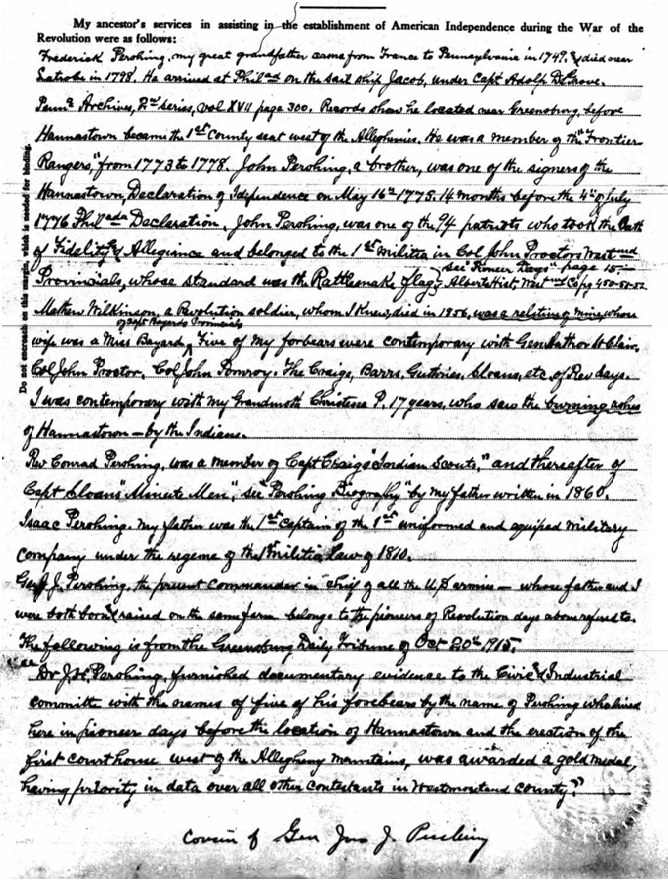 My ancestor's services in assisting in the establishment of American Independence during the War of the
Revolution were as follows:
Frederick Pershing, my great grandfather came from France to Pennsylvania in 1749. & died near
Latrobe in 1798. He arrived at Philad on the sail ship Jacob, under Capt Adolf De Grove.
Penna Archives, 2nd series, vol XVII page 300. Records show he located near Greensburg, before
Hannastown became the 1st County seat west of the Alleghenies. He was a member of the "Frontier
Rangers," from 1773 to 1778. John Pershing, a brother, was one of the signers of the
Hannastown, Declaration of Idependence on May 16th 1775. 14 months before the 4th of July
1776 Philada Declaration. John Pershing, was one of the 94 patriots who took the Oath
of Fidelity & Allegiance and belonged to the 1st militia in Col John Proctors Westmd
Provincials, whose standard was the Rattlesnake flag,
see "Pioneer Days" page 15 —
Alberts Hist. West md Copy 450-50-52
Mathew Wilkinson, a Revolution soldier, whom I knew, died in 1856, was a relative of mine, whose
of Capt Bayards Provincials
wife was a Miss Bayard, Five of my forbears were contemporary with Gen Arthor St Clair,
Col John Proctor, Col John Pomroy. The Craigs, Barrs, Guthries, Sloans, etc. of Rev days.
I was contemporary with my Grandmoth Christena P. 17 years, who saw the burning ashes
of Hannastown — by the Indians.
Rev Conrad Pershing, was a member of Capt Craigs "Indian Scouts," and thereafter of
Capt Sloans "Minute Men", see "Pershing Biography" by my father written in 1860.
Isaac Pershing. my father was the 1st Captain of the 1st uniformed and equiped military
company under the regeme of the militia law of 1810.
Genl J. J. Pershing, the present Commander in Chief of all the U.S armies — whose father and I
were both born & raised on the same farm belongs to the pioneers of Revolution days above refered to.
The following is from the Greensburg Daily Tribune of Oct 20th 1915.
"Dr J.H. Pershing, furnished documentary evidence to the Civic & Industrial
committe with the names of five of his forebears by the name of Pershing who lived
here in pioneer days before the location of Hannastown and the erection of the
first courthouse west of the Allegheny mountains, was awarded a gold medal,
having priority in data over all other contestants in Westmoreland county."
Cousin of Gen Jno J. Pershing
Do not encroach on this margin, which is needed for binding.